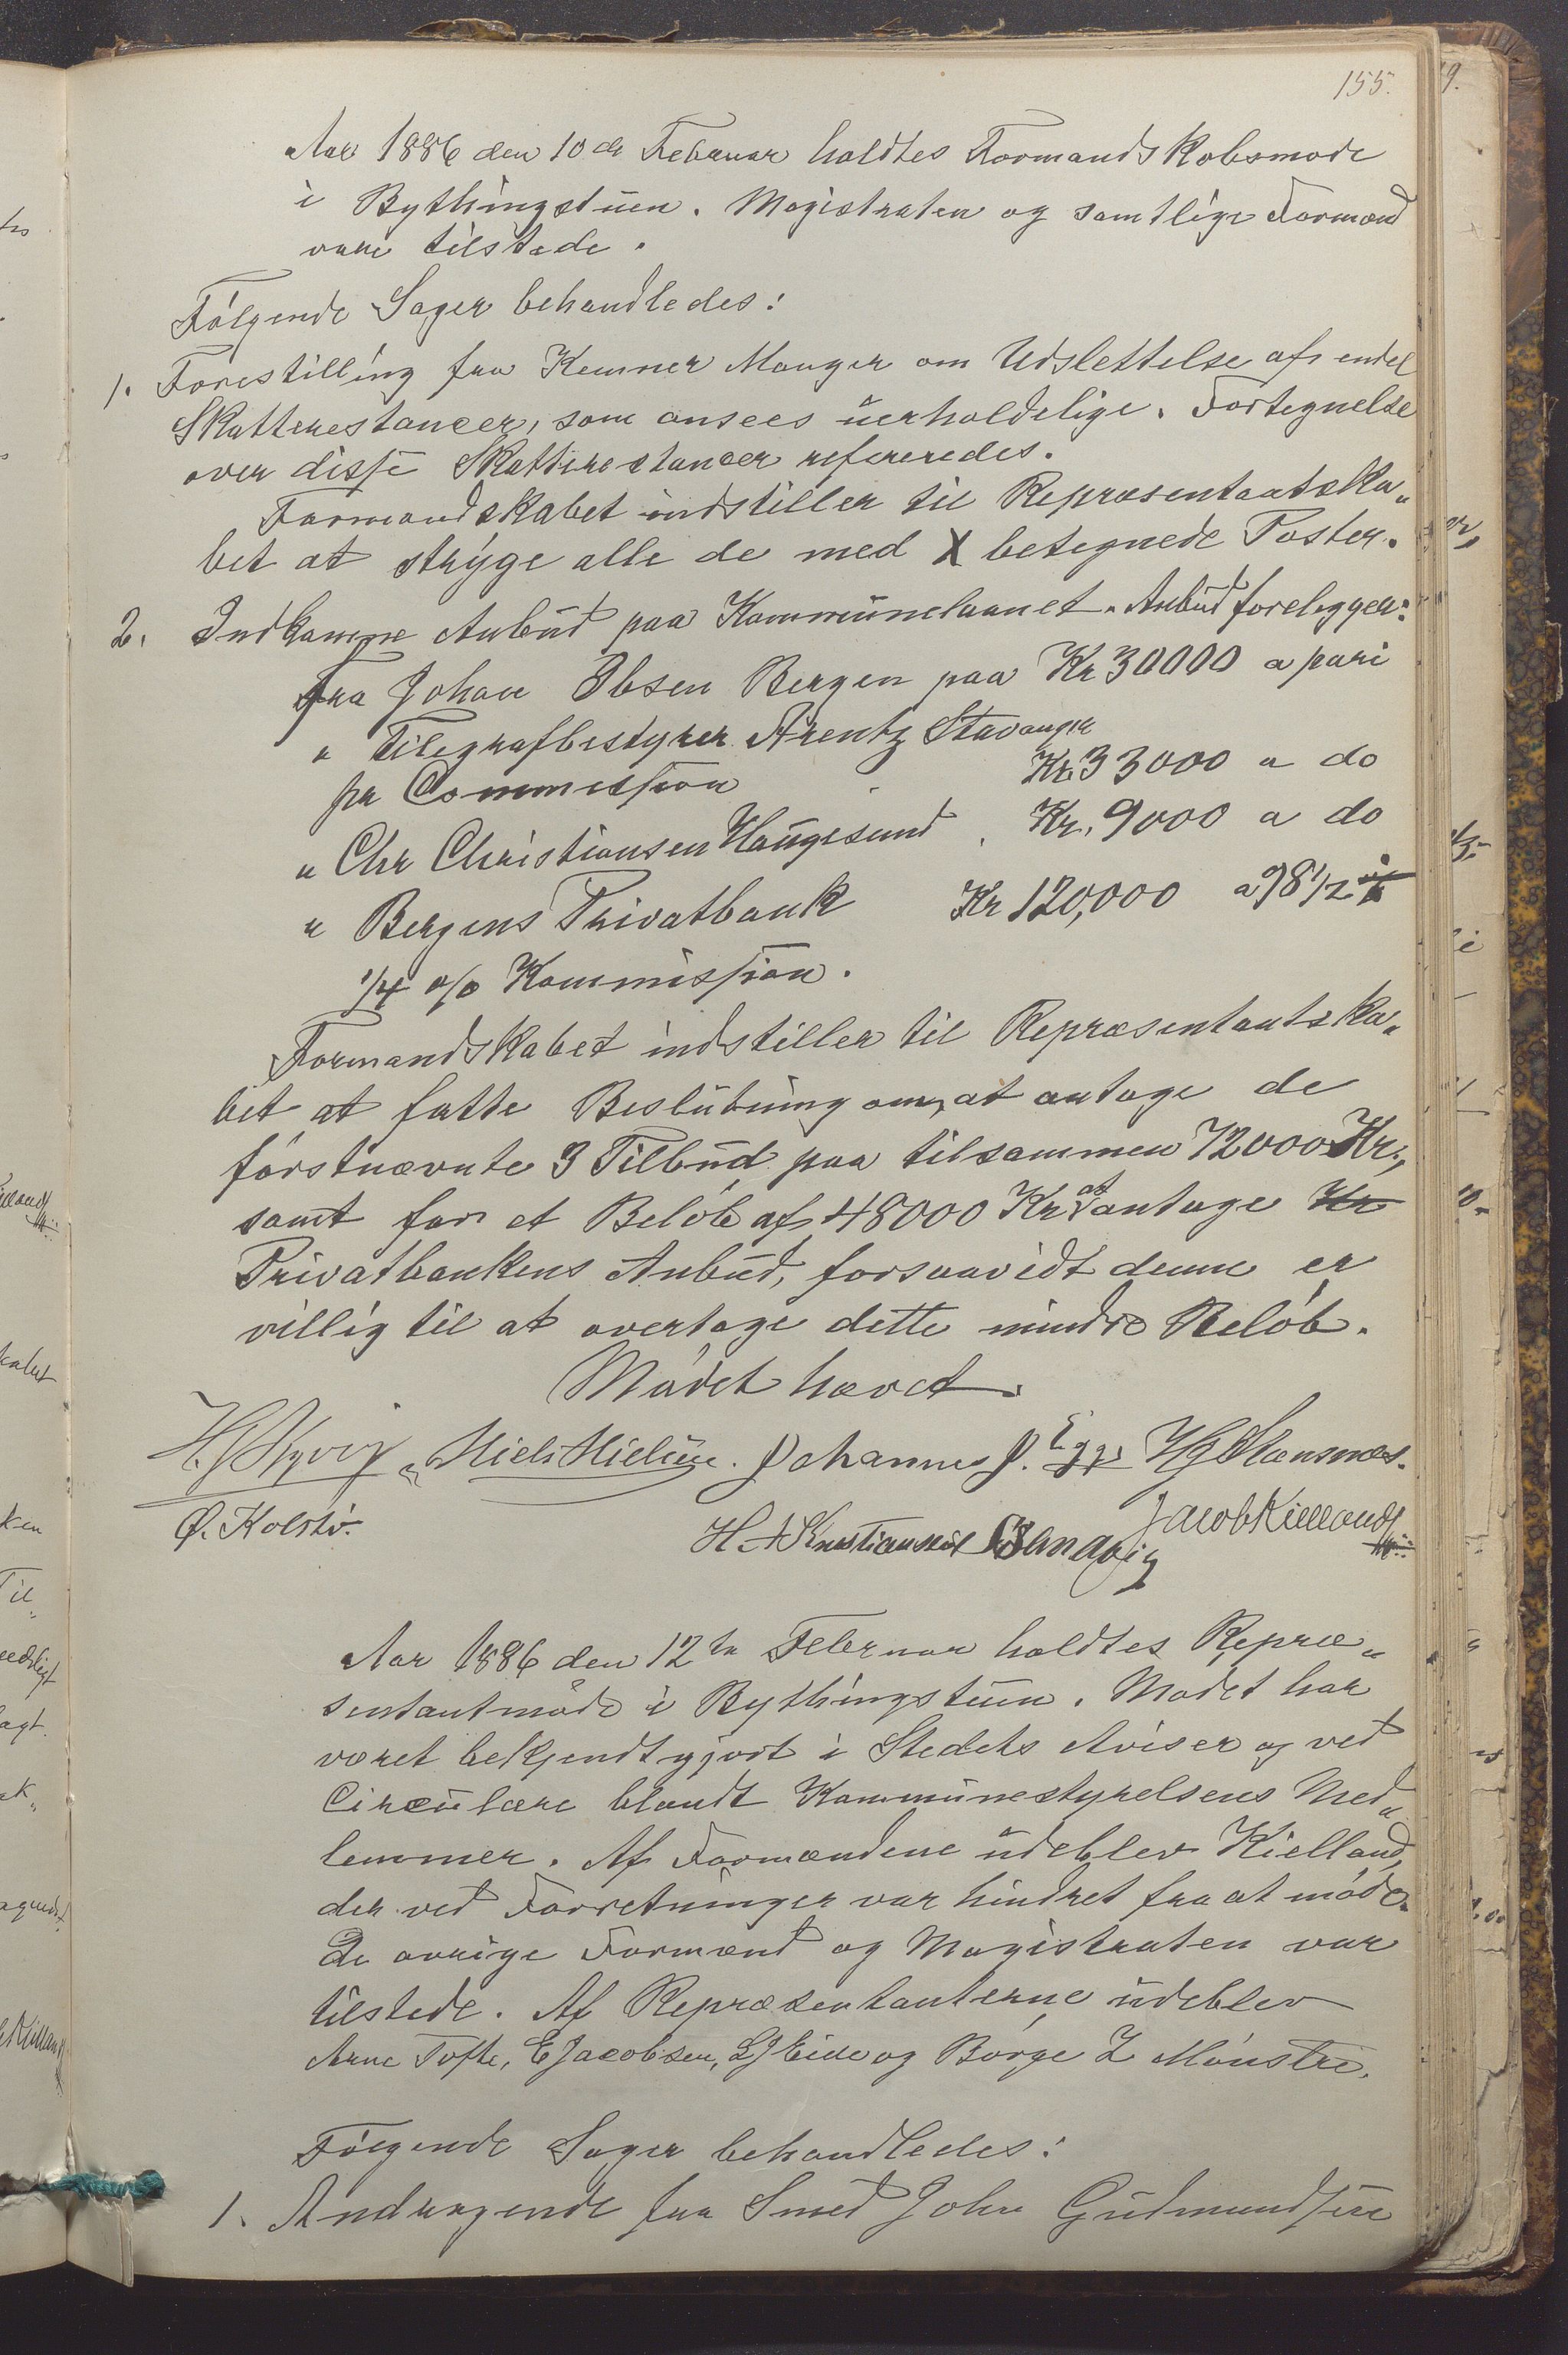 155.
Aar 1886 den 10de Februar holdtes Formandskabsmøde
i Bythingstuen. Magistraten og samtlige Formænd
vare tilstede.
Følgende Sager behandledes:
1. Forestilling fra Kemner Monger om Udslettelse af endel
Skatterestancer, som ansees uerholdelige. Fortegnelse
over disse Skatterestancer refereredes.
Formandskabet indstiller til Repræsentantska„
bet at stryge alle de med X betegnede Poster.
2. Indkomne Anbud paa Kommunelaanet. Anbud foreligger:
fra Johan Ibsen Bergen paa Kr 30000 a pari
„ Telegrafbestyrer Arentz Stavanger
pr Commission Kr. 33000 a do
„ Chr Christiansen Haugesund Kr. 9000 a do
„ Bergens Privatbank Kr 120,000 a 98 1/2
1/4 o/o Kommission.
Formandskabet indstiller til Repræsentantska„
bet at fatte Beslutning om, at antage de
førstnævnte 3 Tilbud paa tilsammen 72000 Kr.,
samt for et Beløb af 48000 Kr at antage Kr
Privatbankens Anbud, forsaavidt denne er
villig til at overtage dette mindre Beløb.
Mødet hævet.
Niels Nielsen. Johannes J. Egge
Ø. Kolstø. H A Kristiansen Sandvig Jacob Kielland
Aar 1886 den 12te Februar holdtes Repræ„
sentantmøde i Bythingstuen. Mødet har
været bekjendtgjort i Stedets Aviser og ved
Circulære blandt Kommunestyrelsens Med„
lemmer. Af Formændene udeblev Kielland,
der ved Forretninger var hindret fra at møde.
De øvrige Formænd og Magistraten var
tilstede. Af Repræsentanterne udeblev
Arne Tofte, E Jacobsen, L J Eide og Børge Z Mønstre.
Følgende Sager behandledes:
1. Andragende fra Smed John Gudmundsen